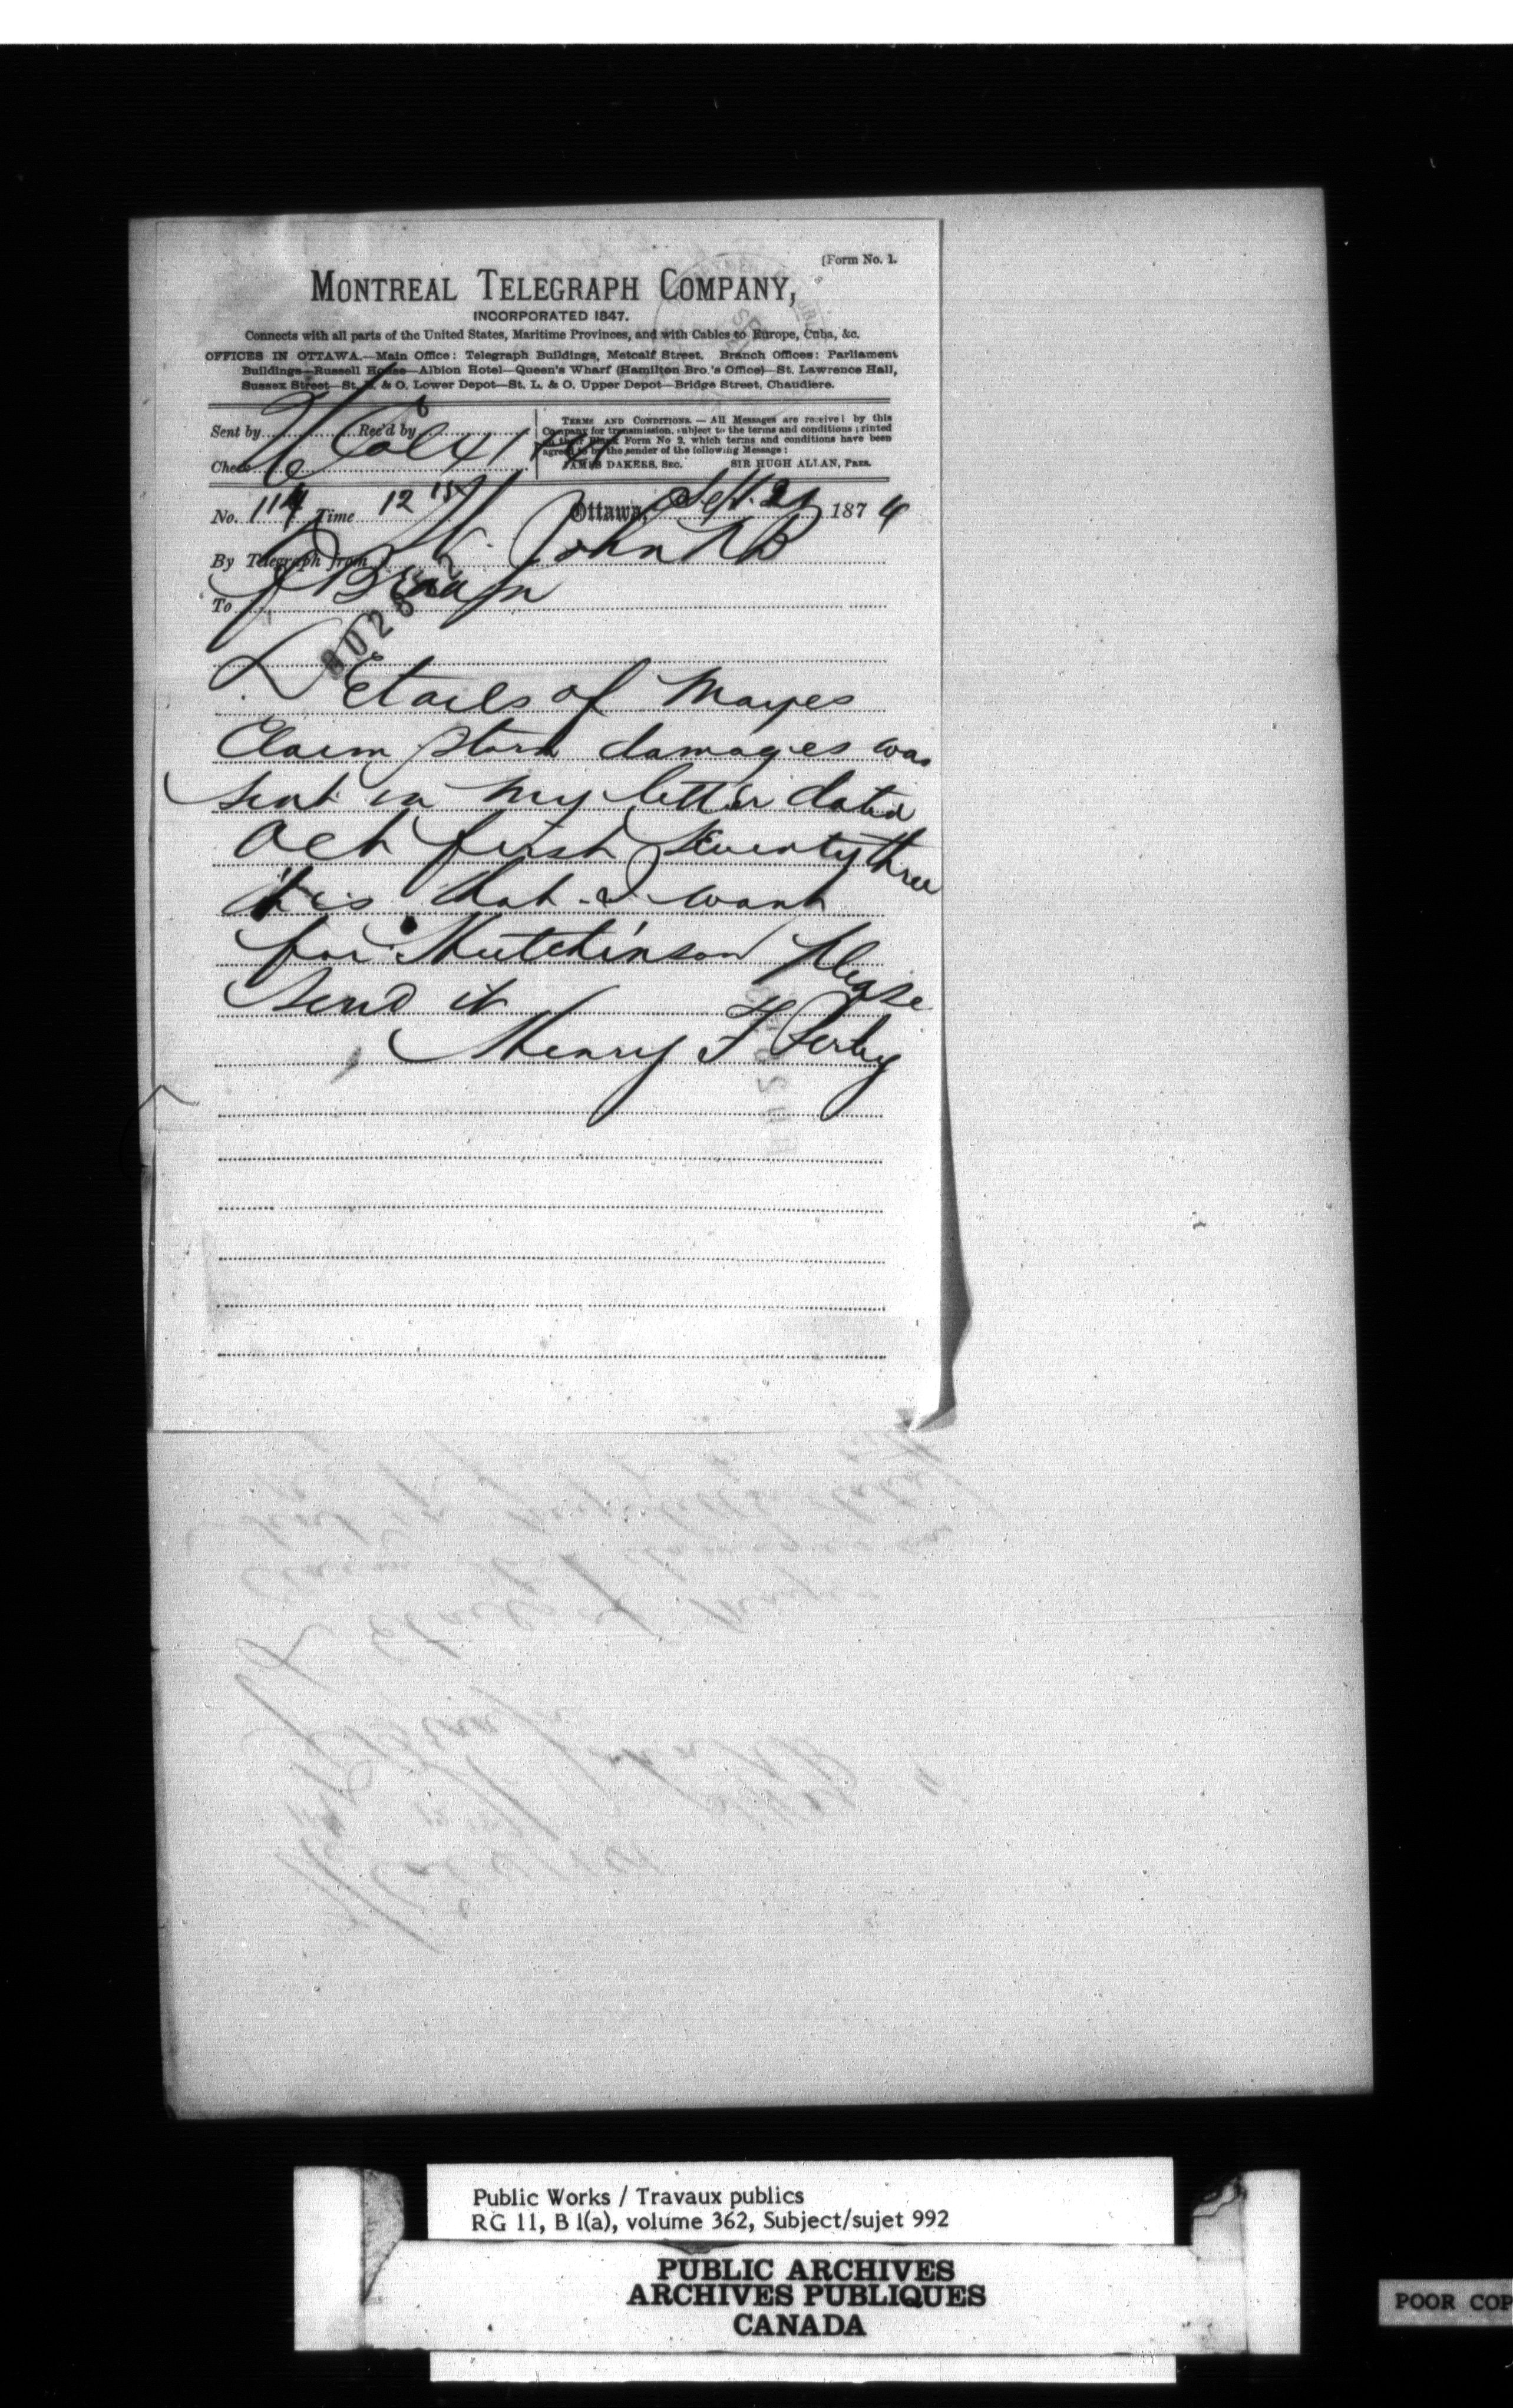 (Form No. 1.
MONTREAL TELEGRAPH COMPANY,
INCORPORATED 1847.
Connects with all parts of the United States, Maritime Provinces, and with Cables to Europe, Cuba, &c.
OFFICES IN OTTAWA.—Main Office: Telegraph Buildings, Metcalf Street. Branch Offices: Parliament
Buildings—Russell House—Albion Hotel—Queen's Wharf (Hamilton Bro.'s Office)—St. Lawrence Hall,
Sussex Street—St. L. & O. Lower Depot—St. L. & O. Upper Depot—Bridge Street, Chaudiere.
Sent by Rec'd by
Check
TERMS AND CONDITIONS. — All Messages are received by this
Company for transmission, subject to the terms and conditions printed
on their Blank Form No 2, which terms and conditions have been
agreed to by the sender of the following Message:
JAMES DAKERS, SEC. SIR HUGH ALLAN, PRES.
No. 114 Time 12 15 Ottawa, Sept. 21 1874
By Telegraph from St. John NB
To Braun
Details of Mayes
Claim storm damages was
sent in my letter dated
Oct first Seventy three
it is that I want
for Hutchinson please
send it
Henry F Perley
Public Works / Travaux publics
RG 11, B 1(a), volume 362, Subject/sujet 992
PUBLIC ARCHIVES
ARCHIVES PUBLIQUES
CANADA
POOR COP